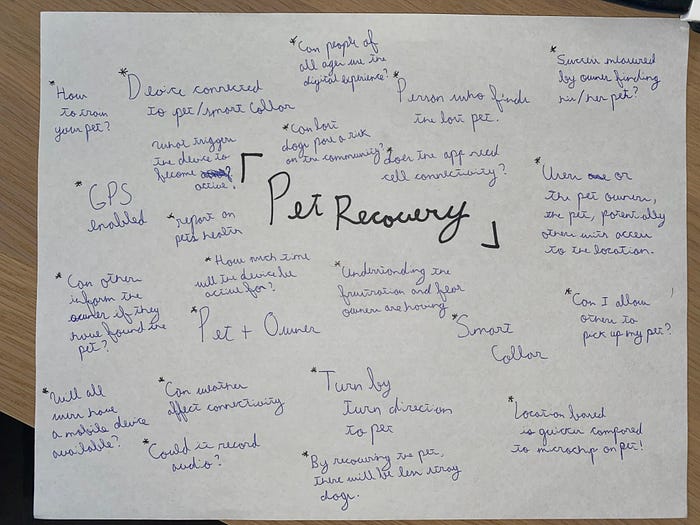 *How
to train
your pet?
*Device connected
to pet/smart collar
*Can people of
all ages use the
digital experience?
*Person who finds
the lost pet.
*Success measured
by owner finding
his/her pet?
What triggers
the device to
become
active?
*Can lost
dogs pose a risk
on the community?
*does the app need
cell connectivity?
*GPS
enabled
*report on
pets health
「Pet Recovery」
*Users are or
the pet owners,
the pet, potentially
others with access
to the location.
*How much time
will the device be
active for?
*Understanding the
frustration and fear
owners are having
*Can others
inform the
owner if they
have found the
pet?
*Pet + Owner
*Smart
Collar
*Can I allow
others to
pick up my pet?
*Will all
users have
a mobile device
available?
*Can weather
affect connectivity
*Could it record
audio?
*Turn by
turn direction
to pet
*By recovering the pet,
there will be less stray
dogs.
*Location based
is quicker compared
to microchip on pet!